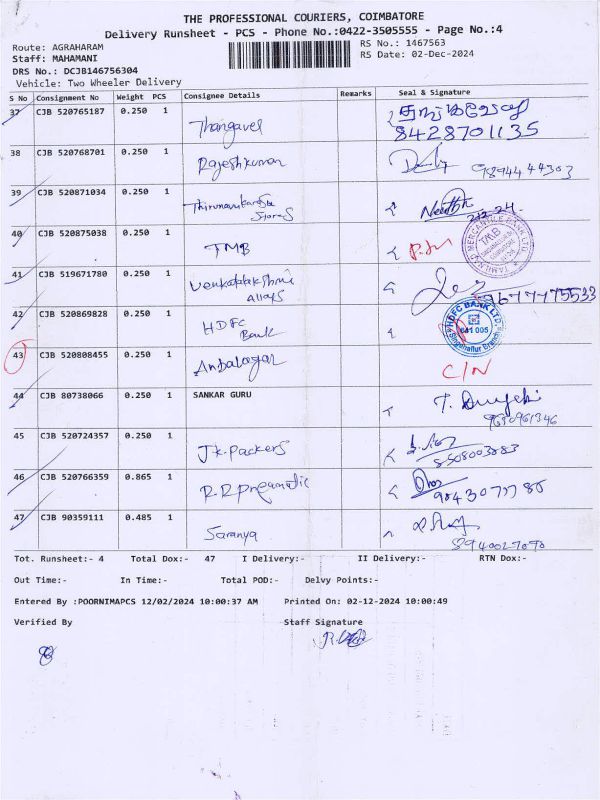 THE PROFESSIONAL COURIERS, COIMBATORE
Delivery Runsheet - PCS - Phone No.:0422-3505555 - Page No.:4
Route: AGRAHARAM RS No.: 1467563
Staff: MAHAMANI RS Date: 02-Dec-2024
DRS No.: DCJB146756304
Vehicle: Two Wheeler Delivery
S No Consignment No Weight PCS Consignee Details Remarks Seal & Signature
37 CJB 520765187 0.250 1 Thangavel தங்கவேலு
8428701135
38 CJB 520768701 0.250 1 Rajeshkumar 9894444303
39 CJB 520871034 0.250 1 Thirunavukarasu
Stores
40 CJB 520875038 0.250 1 TMB
TAMILNAD MERCANTILE BANK LTD.
TMB
41 CJB 519671780 0.250 1 Venkatalakshmi
alloys 9677775533
42 CJB 520869828 0.250 1 HDFC
Bank
HDFC BANK LTD.
641 005
Singanallur Branch
43 CJB 520808455 0.250 1 Anbalagan C/N
44 CJB 80738066 0.250 1 SANKAR GURU
9690961346
45 CJB 520724357 0.250 1 Jk. Packers
8508003883
46 CJB 520766359 0.865 1 R.R Pneumatic
47 CJB 90359111 0.485 1 Saranya
8940027090
Tot. Runsheet:- 4 Total Dox:- 47 I Delivery:- II Delivery:- RTN Dox:-
Out Time:- In Time:- Total POD:- Delvy Points:-
Entered By :POORNIMAPCS 12/02/2024 10:00:37 AM Printed On: 02-12-2024 10:00:49
Verified By Staff Signature